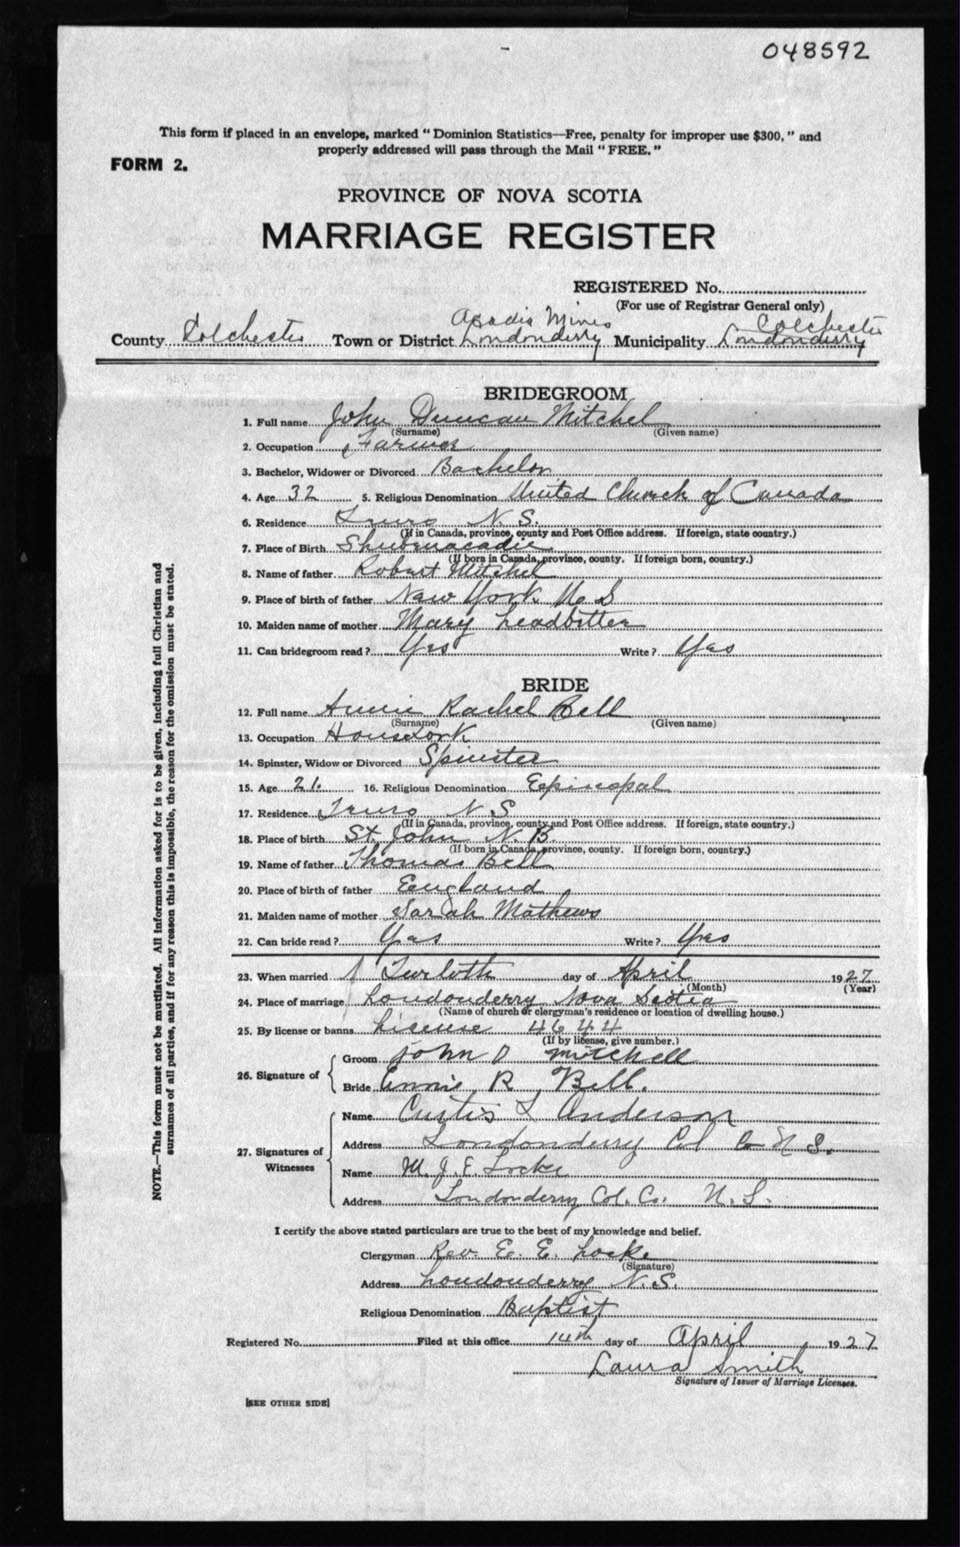 048592
This form if placed in an envelope, marked "Dominion Statistics—Free, penalty for improper use $300," and
properly addressed will pass through the Mail "FREE."
FORM 2.
PROVINCE OF NOVA SCOTIA
MARRIAGE REGISTER
REGISTERED No.
(For use of Registrar General only)
Acadia Mines Colchester
County Colchester Town or District Londonderry Municipality Londonderry
BRIDEGROOM
1. Full name John Duncan Mitchel
(Surname) (Given name)
2. Occupation Farmer
3. Bachelor, Widower or Divorced Bachelor
4. Age 32 5. Religious Denomination United Church of Canada
6. Residence Truro N.S.
(If in Canada, province, county and Post Office address. If foreign, state country.)
7. Place of Birth Shubenacadie
(If born in Canada, province, county. If foreign born, country.)
8. Name of father Robert Mitchel
9. Place of birth of father New York U.S
10. Maiden name of mother Mary Leadbetter
11. Can bridegroom read? Yes Write? Yes
BRIDE
12. Full name Annie Rachel Bell
(Surname) (Given name)
13. Occupation Housework
14. Spinster, Widow or Divorced Spinster
15. Age 21. 16. Religious Denomination Episcopal
17. Residence Truro N.S
(If in Canada, province, county and Post Office address. If foreign, state country.)
18. Place of birth St. John N.B.
(If born in Canada, province, county. If foreign born, country.)
19. Name of father Thomas Bell
20. Place of birth of father England
21. Maiden name of mother Sarah Mathews
22. Can bride read? Yes Write? Yes
23. When married Twelvth day of April 1927
(Month) (Year)
24. Place of marriage Londonderry Nova Scotia
(Name of church or clergyman's residence or location of dwelling house.)
25. By license or banns License 4644
(If by license, give number.)
26. Signature of
Groom John D Mitchell
Bride Annie R Bell.
27. Signatures of Witnesses
Name Curtis L Anderson
Address Londonderry Col Co N S.
Name M J. E. Locke
Address Londonderry Col. Co. N.S.
I certify the above stated particulars are true to the best of my knowledge and belief.
Clergyman Rev. E. E. Locke
(Signature)
Address Londonderry N.S.
Religious Denomination Baptist
Registered No. Filed at this office 14th day of April 1927
Laura Smith
Signature of Issuer of Marriage Licenses.
[SEE OTHER SIDE]
NOTE.—This form must not be mutilated. All information asked for is to be given, including full Christian and
surnames of all parties, and if for any reason this is impossible, the reason for the omission must be stated.